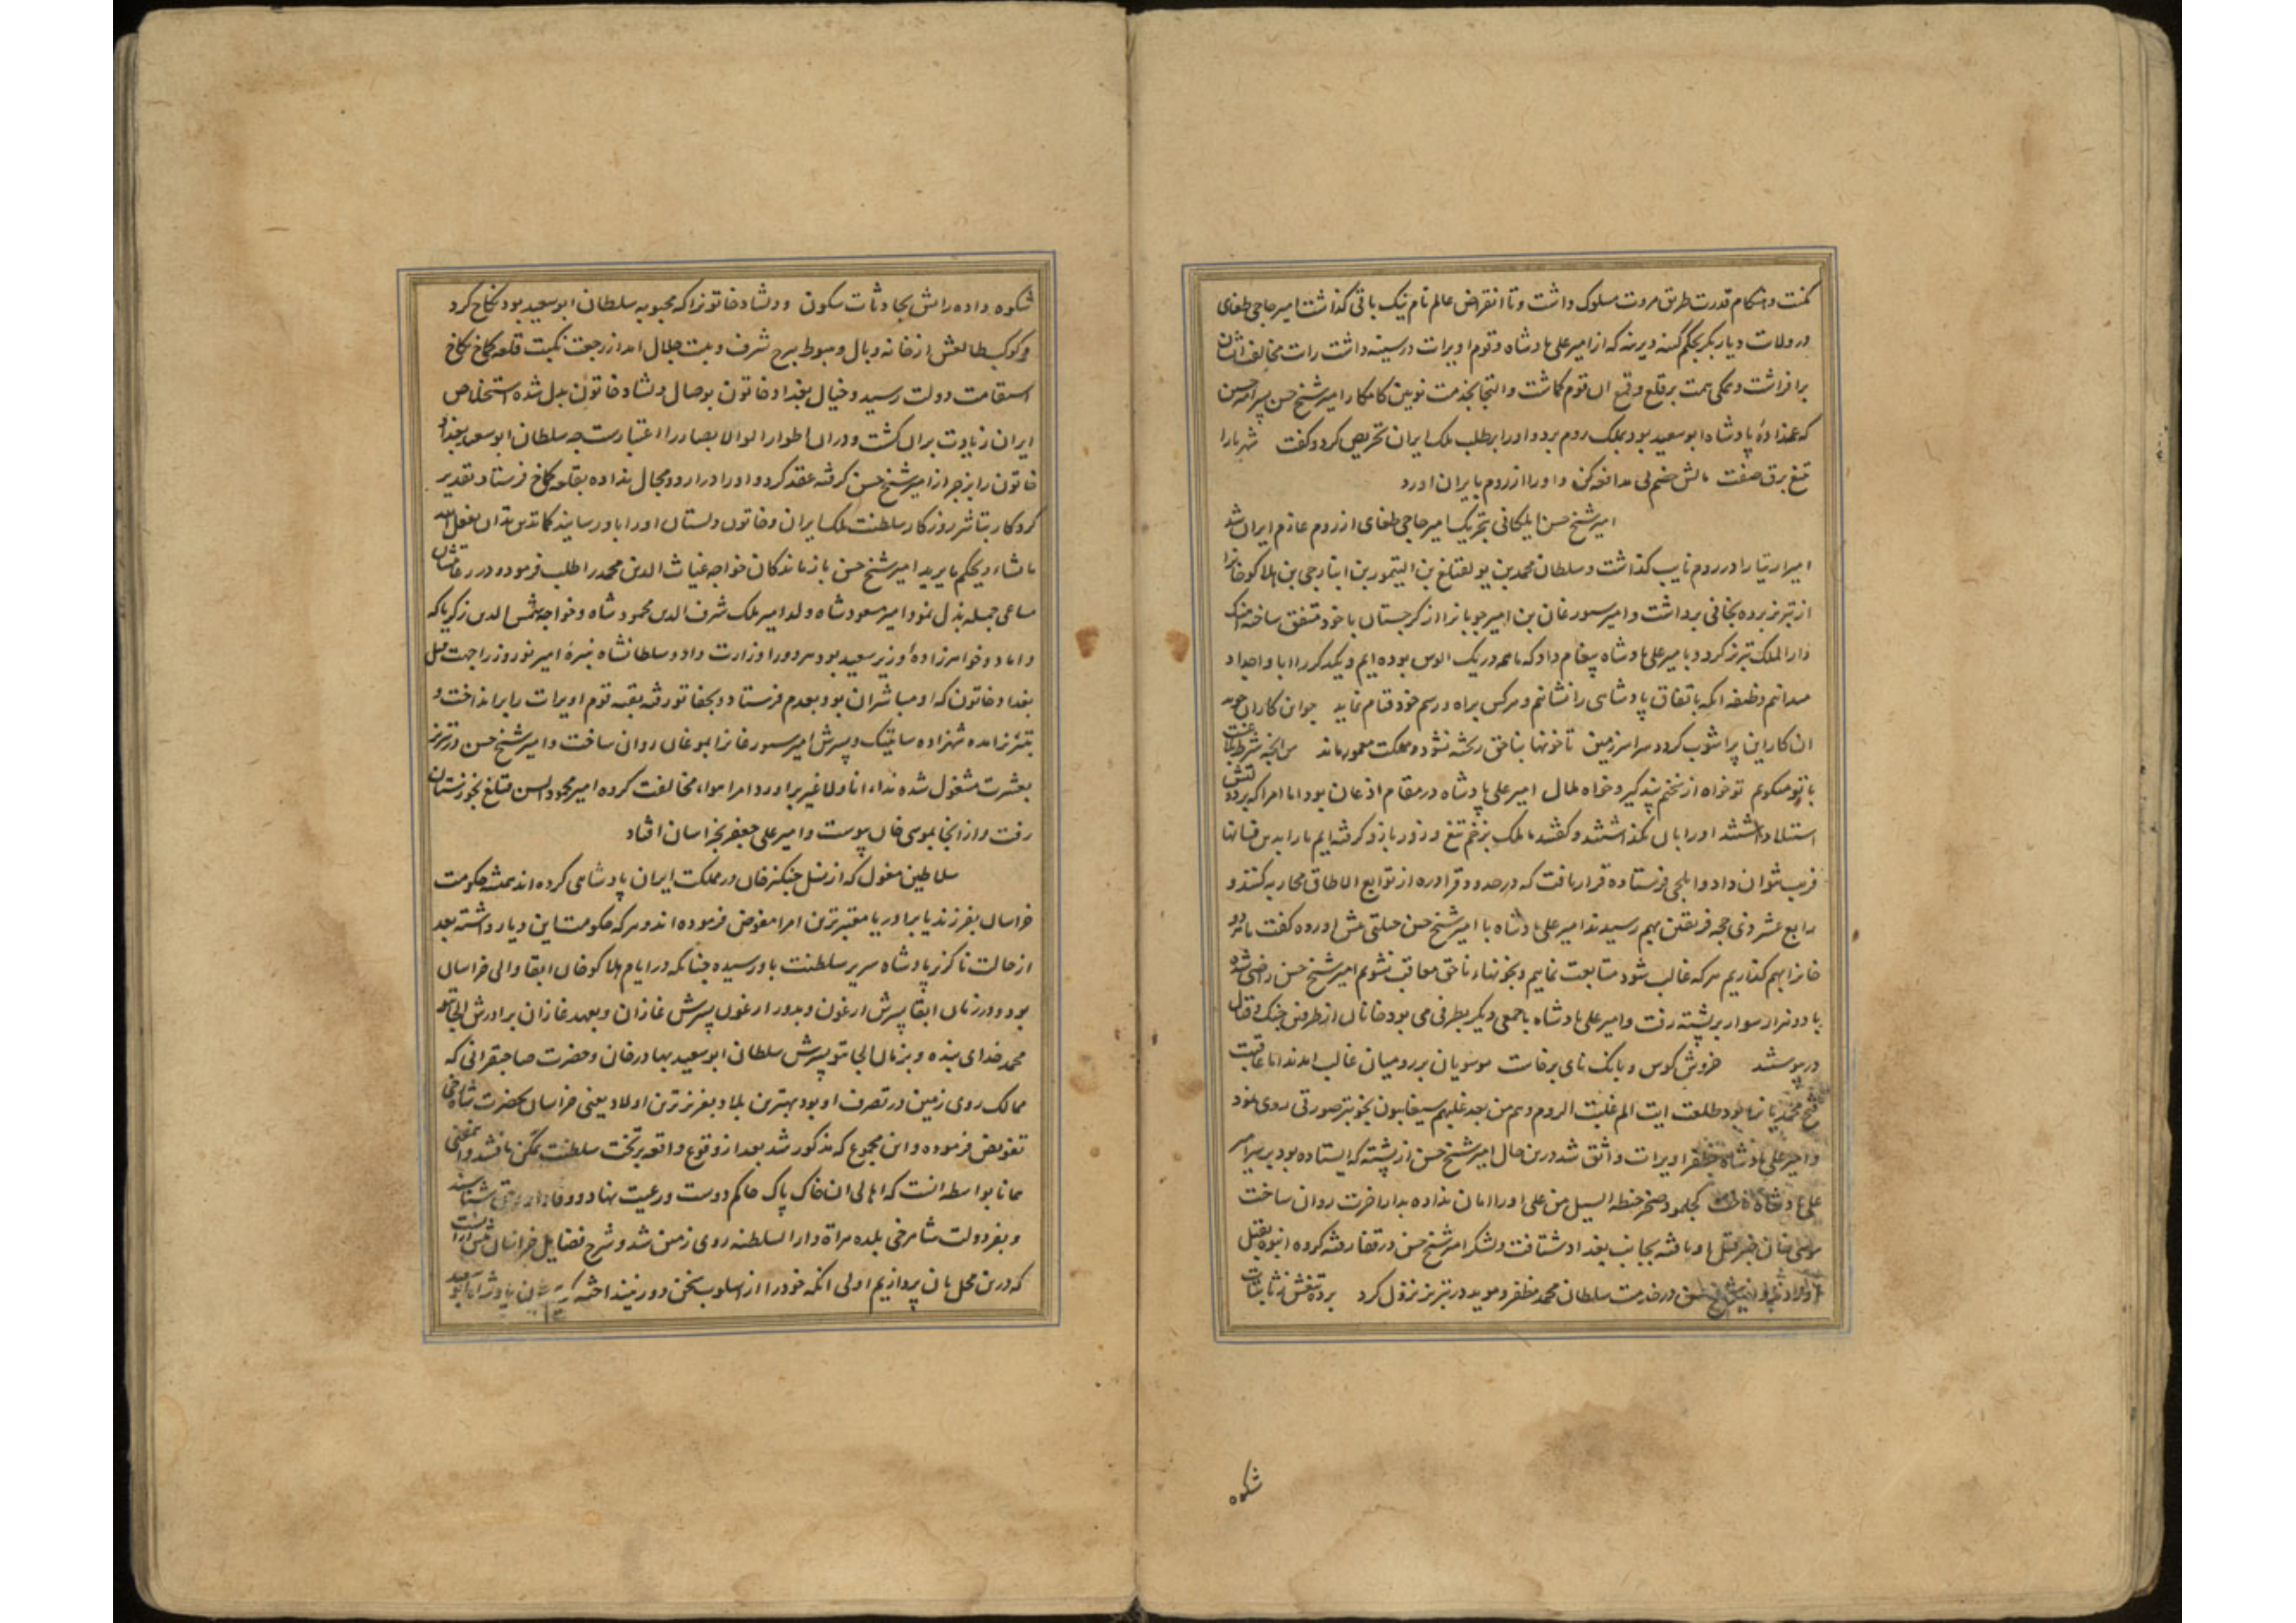 مکنت و هنکام قدرت طریق مروت مسلوک داشت و تا انقراض عالم نام نیک باقی کذاشت امیر حاجی طغای
در ولات دیاربکر بحکم کینه دیرینه که از امیر علی پادشاه و قوم اویرات در سینه داشت رات مخالفت ایشان
برافراشت و همکی همت بر قلع و قمع ان قوم کماشت و التجا بخدمت نویین کامکار امیر شیخ حسن پسر امیر حسین
که عمه زادهٔ پادشاه ابوسعید بود بملک روم برد و او را بر طلب ملک ایران تحریص کرد و کفت شهریارا
تیغ برق صفت مالش خصم بی مدافعه کن و او را از روم بایران اورد
امیر شیخ حسن ایلکانی بتحریک امیر حاجی طغای از روم عازم ایران شد
امیر ارتیا را در روم نایب کذاشت و سلطان محمد بن یولقتلغ بن ایتیمور بن انبارجی بن هلاکوخانرا
از تبریز برده بخانی برداشت و امیر سورغان بن امیر چوبانرا از کرجستان با خود متفق ساخته اهنک
دارالملک تبریز کرد و بامیر علی پادشاه پیغام داد که ما همه در یک الوس بوده ایم و یکدکر را ابا و اجداد
میدانیم وظیفه انکه باتفاق پادشاهی را نشانیم و هر کس براه و رسم خود قیام نماید چو این کار ان جوید
ان کار این پراشوب کردد سراسر زمین تا خونها بناحق ریخته نشود و مملکت معمور ماند من انچه شرط بلاغست
با تو میکویم تو خواه از سخنم پند کیر و خواه ملال امیر علی پادشاه در مقام اذعان بود اما امرا که بر دولتش
استیلا داشتند او را بان نکذاشتند و کفتند ما ملک بزخم تیغ و زور بازو کرفته ایم ما را بدین فسانها
فریب نتوان داد و ایلچی فرستاده قرار یافت که در حدود قراوره از توابع الاطاق محاربه کنند و
رابع عشر ذی حجه فریقین بهم رسیدند امیر علی پادشاه با امیر شیخ حسن حیلتی پیش اورده کفت ما هر دو
خانرا بهم کذاریم هر که غالب شود متابعت نماییم و بخونهاء ناحق معاقب نشویم امیر شیخ حسن راضی شده
با دو هزار سوار بر پشته رفت و امیر علی پادشاه با جمعی دیکر بطرفی می بود خانان از طرفین جنک و قتال
درپیوستند خروش کوس و بانک نای برخاست موسویان بر رومیان غالب امدند اما عاقبت
فتح محمدیانرا بود طلعت ایت الم غلبت الروم و هم من بعد غلبهم سیغلبون بخوبتر صورتی روی نمود
و امیر علی پادشاه بظفر اویرات واثق شد درین حال امیر شیخ حسن از پشته که ایستاده بود بر سر امیر
علی پادشاه تاخت کجلمود صخر حطه السیل من علی او را امان نداده بدار اخرت روان ساخت
موسی خان خبر قتل او یافته بجانب بغداد شتافت و لشکر امیر شیخ حسن در قفا رفته کرده انبوه بقتل
اوردند و امیر شیخ حسن در خدمت سلطان محمد مظفر و موید در تبریز نزول کرد برده تیغش ز ثابتات
شکوه
شکوه داده رایش بحادثات سکون و دلشاد خاتونرا که محبوبه سلطان ابوسعید بود نکاح کرد
و کوکب طالعش از خانه وبال و هبوط ببرج شرف و بیت جلال امد از رجعت نکبت قلعه کماخ بکاخ
استقامت دولت رسید و خیال بغداد خاتون بوصال دلشاد خاتون بدل شده استخلاص
ایران زیادت بر ان کشت و در ان اطوار اولوالابصار را اعتبارست چه سلطان ابوسعید بغداد
خاتون را بزجر از امیر شیخ حسن کرفته عقد کرد و او را در اردو مجال نداده بقلعه کماخ فرستاد تقدیر
کردکار بتاثیر روزکار سلطنت ملک ایران و خاتون دلستان او را باو رسانید کما تدین تدان یفعل الله
مایشاء و یحکم ما یرید امیر شیخ حسن بازماندکان خواجه غیاث الدین محمد را طلب فرموده در رعایتشان
مساعی جمیله بذل نمود امیر مسعود شاه ولد امیر ملک شرف الدین محمود شاه و خواجه شمس الدین زکریا که
داماد و خواهرزادهٔ وزیر سعید بود هر دو را وزارت داد و سلطانشاه نبیرهٔ امیر نوروز را جهت قتل
بغداد خاتون که او مباشر ان بود بعدم فرستاد و بخفاتو رفته بقیه قوم اویرات را برانداخت و
بتبریز امده شهزاده ساتیبک و پسرش امیر سورغانرا بموغان روان ساخت و امیر شیخ حسن در تبریز
بعشرت مشغول شده نداء انا ولا غیر براورد امرا هواء مخالفت کرده امیر محمود ایسن قتلغ بخوزستان
رفت و از انجا بموسی خان پیوست و امیر علی جعفر بخراسان افتاد
سلاطین مغول که از نسل چنکیزخان در مملکت ایران پادشاهی کرده اند همیشه حکومت
خراسان بفرزند یا برادر یا معتبرترین امرا مفوض فرموده اند و هر که حکومت این دیار داشته بعد
از حالت ناکزیر پادشاه سریر سلطنت باو رسیده چنانکه در ایام هلاکوخان ابقا والی خراسان
بود و در زمان ابقا پسرش ارغون و بدور ارغون پسرش غازان و بعهد غازان برادرش الجایتو
محمد خدای بنده و بزمان الجایتو پسرش سلطان ابوسعید بهادرخان و حضرت صاحبقرانی که
ممالک روی زمین در تصرف او بود بهترین بلاد بعزیزترین اولاد یعنی خراسان بحضرت شاهرخی
تفویض فرموده و این مجموع که مذکور شد بعد از وقوع واقعه بر تخت سلطنت تمکن یافتند و این معنی
همانا بواسطه انست که اهالی ان خاک پاک حاکم دوست و رعیت نهاد و وفادار و حق شناسند
و بفر دولت شاهرخی بلده هراة دارالسلطنه روی زمین شد و شرح فضایل خراسان بیش از انست
که درین محل بان پردازیم اولی انکه خود را از اسلوب سخن دور نینداخته پادشاه ابوسعید